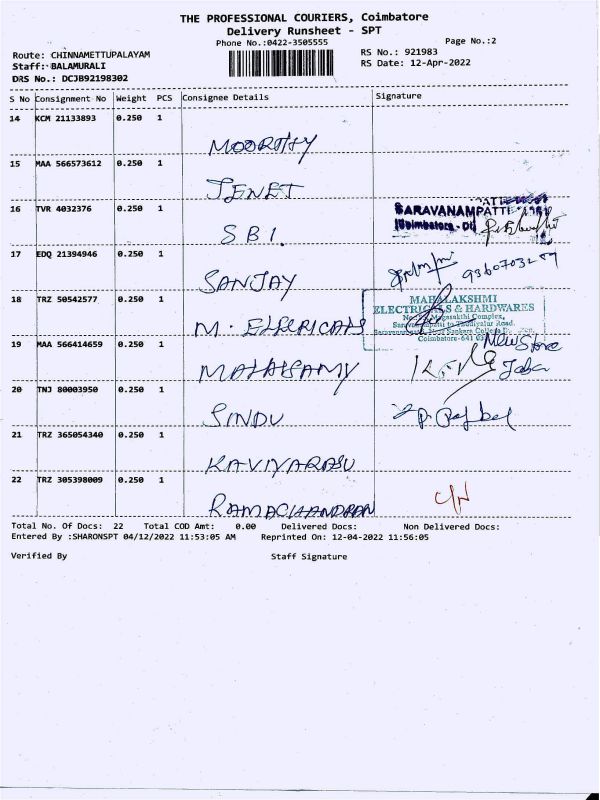 THE PROFESSIONAL COURIERS, Coimbatore
Delivery Runsheet - SPT
Phone No.:0422-3505555
Page No.:2
Route: CHINNAMETTUPALAYAM
RS No.: 921983
Staff: BALAMURALI
RS Date: 12-Apr-2022
DRS No.: DCJB92198302
S No Consignment No Weight PCS Consignee Details Signature
14 KCM 21133893 0.250 1
MOORTHY
15 MAA 566573612 0.250 1
JENET
16 TVR 4032376 0.250 1
SARAVANAMPATTI
SBI.
17 EDQ 21394946 0.250 1
SANJAY
18 TRZ 50542577 0.250 1
MAHALAKSHMI
ELECTRICALS & HARDWARES
M. ELECRICALS
Coimbatore-641 035
19 MAA 566414659 0.250 1
New Store
MATHASAMY
20 TNJ 80003950 0.250 1
SINDU
21 TRZ 365054340 0.250 1
KAVIYARASU
22 TRZ 305398009 0.250 1
RAMACHANDRAN
Total No. Of Docs: 22 Total COD Amt: 0.00 Delivered Docs: Non Delivered Docs:
Entered By :SHARONSPT 04/12/2022 11:53:05 AM Reprinted On: 12-04-2022 11:56:05
Verified By Staff Signature